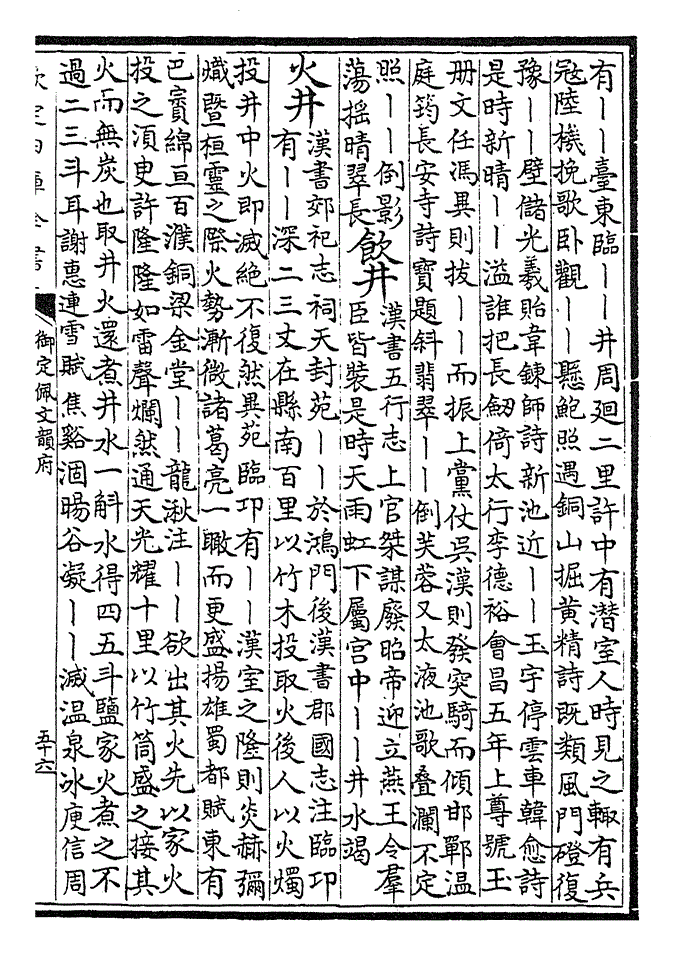 有丨丨臺東臨丨丨井周廻二里許中有潜室人時見之輙有兵
冦陸機挽歌卧觀丨丨懸鮑照遇銅山掘黄精詩既類風門磴復
豫丨丨壁儲光羲貽韋鍊師詩新池近丨丨玉宇停雲車韓愈詩
是時新晴丨丨溢誰把長劒倚太行李德裕會昌五年上尊號玉
册文任馮異則拔丨丨而振上黨仗吳漢則發突騎而傾邯鄲温
庭筠長安寺詩寶題斜翡翠丨丨倒芙蓉又太液池歌叠瀾不定
照丨丨倒影
蕩揺晴翠長
飲井
漢書五行志上官桀謀廢昭帝迎立燕王令羣
臣皆裝是時天雨虹下屬宫中丨丨井水竭
火井
漢書郊祀志祠天封苑丨丨於鴻門後漢書郡國志注臨卭
有丨丨深二三丈在縣南百里以竹木投取火後人以火燭
投井中火即滅絶不復然異苑臨卭有丨丨漢室之隆則炎赫彌
熾暨桓靈之際火勢漸微諸葛亮一瞰而更盛揚雄蜀都賦東有
巴賨綿亘百濮銅梁金堂丨丨龍湫注丨丨欲出其火先以家火
投之須臾許隆隆如雷聲爛然通天光耀十里以竹筒盛之接其
火而無炭也取井火還煮井水一斛水得四五斗鹽家火煮之不
過二三斗耳謝惠連雪賦焦谿涸暘谷凝丨丨滅温泉冰庾信周
欽定四庫全書
御定佩文韻府
五十六